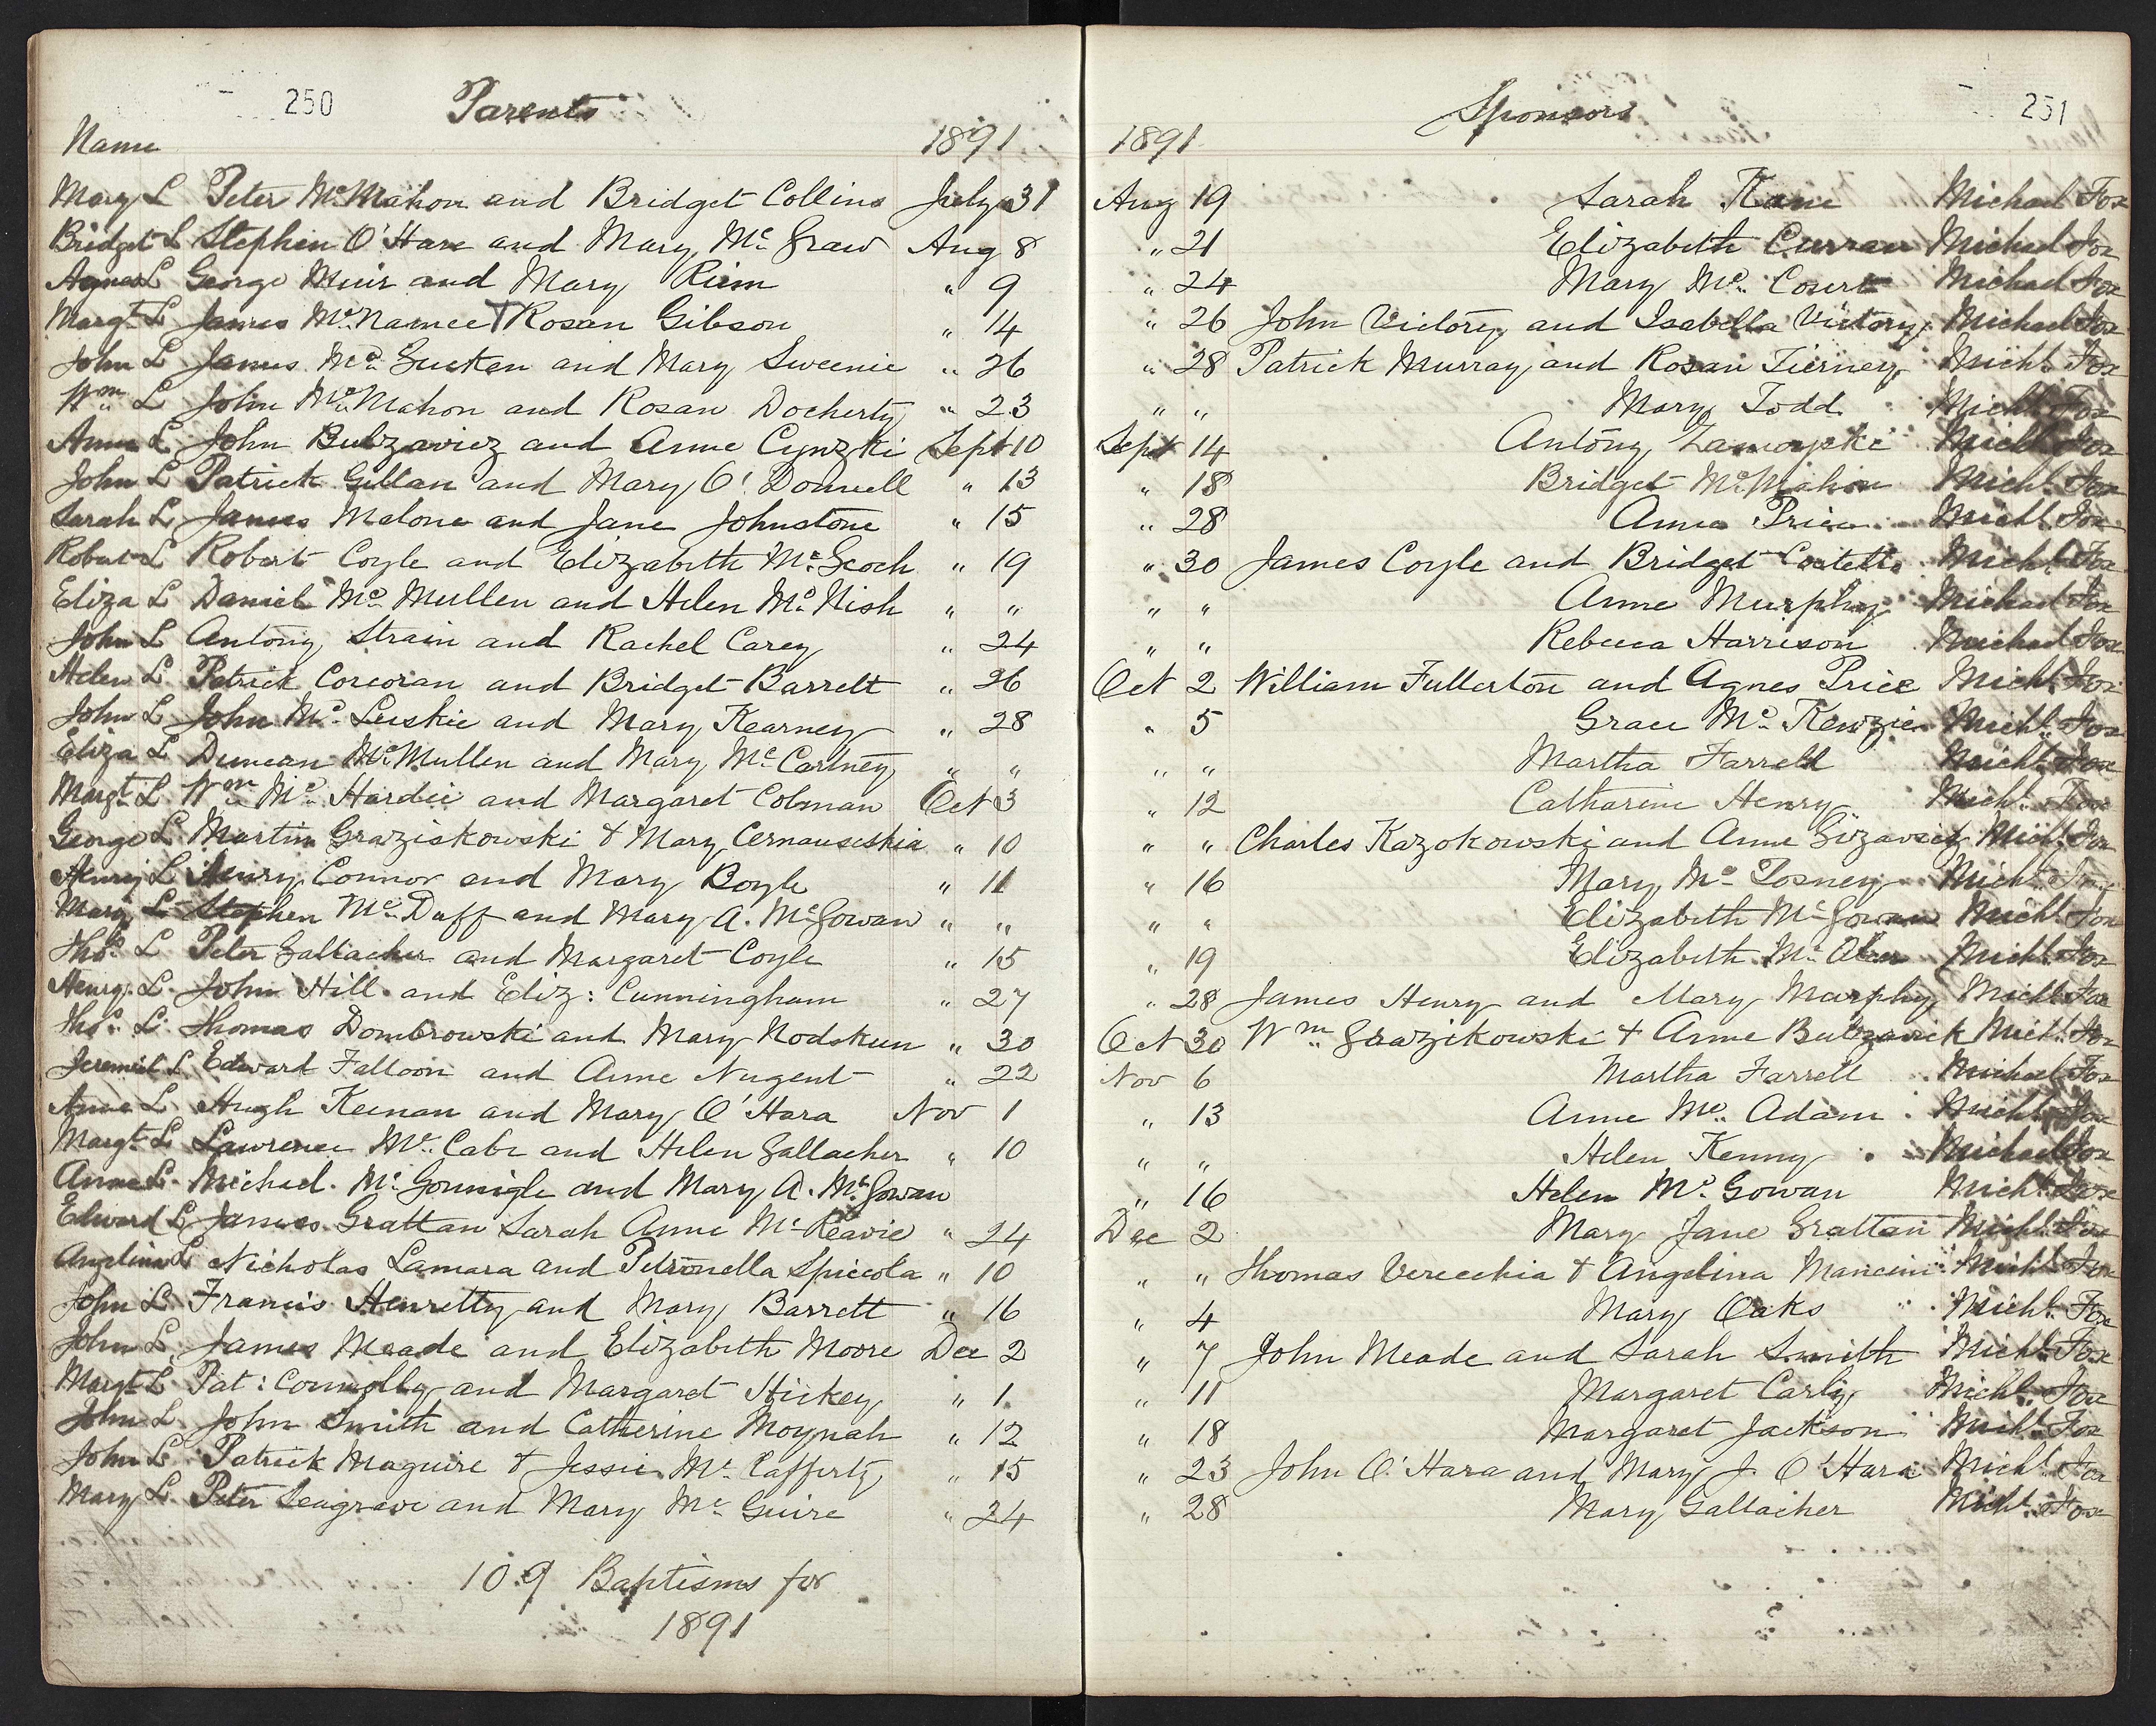 250 Parents
Name 1891
Mary L Peter McMahon and Bridget Collins July 31
Bridget L Stephen O'Hare and Mary Mc Graw Aug 8
Agnes L George Muir and Mary " 9
Margt L James McNamee & Rosan Gibson " 14
John L James Mc and Mary Sweenie " 26
Wm L John McMahon and Rosan Docherty " 23
Anne L John Bulzawicz and Anne Cynzki Sept 10
John L Patrick Gillan and Mary O'Donnell " 13
Sarah L James Malone and Jane Johnstone " 15
Robert L Robert Coyle and Elizabeth McGeoch " 19
Eliza L Daniel Mc Mullen and Helen Mc Nish " "
John L Antony Strain and Rachel Carey " 24
Helen L Patrick Corcoran and Bridget Barrett " 26
John L John Mc Luskie and Mary Kearney " 28
Eliza L Duncan McMullen and Mary McCartney " "
Margt L Wm Mc Hardie and Margaret Colman Oct 3
George L Martin Graziskowski & Mary " 10
Henry L Henry Connor and Mary Boyle " 11
Mary L Stephen Mc Duff and Mary A. McGowan " "
Thos L Peter Gallacher and Margaret Coyle " 15
Henry L John Hill and Eliz: Cunningham " 27
Thos L Thomas Dombrowski and Mary Nodskun " 30
Jeremiah L Edward Falloon and Anne Nugent " 22
Anne L Hugh Keenan and Mary O'Hara Nov 1
Margt L Lawrence McCabe and Helen Gallacher " 10
Anne L Michael McGonnigle and Mary A. McGowan
Edward L James Grattan Sarah Anne McReavie " 24
Angelina L Nicholas Lamara and Petronella Spiccola " 10
John L Francis Henretty and Mary Barrett " 16
John L James Meade and Elizabeth Moore Dec 2
Margt L Pat: Connolly and Margaret Hickey " 1
John L John Smith and Catherine Moynah " 12
John L Patrick Maguire & Jessie McCafferty " 15
Mary L Peter Seagrave and Mary McGuire " 24
109 Baptisms for
1891
Sponsors 251
1891
Aug 19 Sarah Kane Michael Fox
" 21 Elizabeth Curran Michael Fox
" 24 Mary Mc Court Michael Fox
" 26 John Victory and Isabella Victory Michael Fox
" 28 Patrick Murray and Rosan Tierney Michl Fox
" " Mary Todd Michl Fox
Sept 14 Antony Zamoyski Michl Fox
" 18 Bridget McMahon Michl Fox
" 28 Anne Price Michl Fox
" 30 James Coyle and Bridget Costello Michl Fox
" " Anne Murphy Michael Fox
" " Rebecca Harrison Michael Fox
Oct 2 William Fullerton and Agnes Price Michl Fox
" 5 Grace McKenzie Michl Fox
" " Martha Farrell Michl Fox
" 12 Catharine Henry Michl Fox
" " Charles Kazokowski and Anne Michl Fox
" 16 Mary Mc Michl Fox
" " Elizabeth McGowan Michl Fox
" 19 Elizabeth Mc Michl Fox
" 28 James Henry and Mary Murphy Michl Fox
Oct 30 Wm Grazikowski & Anne Michl Fox
Nov 6 Martha Farrell Michael Fox
" 13 Anne Mc Adam Michl Fox
" " Helen Kenny Michael Fox
" 16 Helen McGowan Michl Fox
Dec 2 Mary Jane Grattan Michl Fox
" " Thomas Verecchia & Angelina Mancini Michl Fox
" 4 Mary Oaks Michl Fox
" 7 John Meade and Sarah Smith Michl Fox
" 11 Margaret Carly Michl Fox
" 18 Margaret Jackson Michl Fox
" 23 John O'Hara and Mary J. O'Hara Michl Fox
" 28 Mary Gallacher Michl Fox